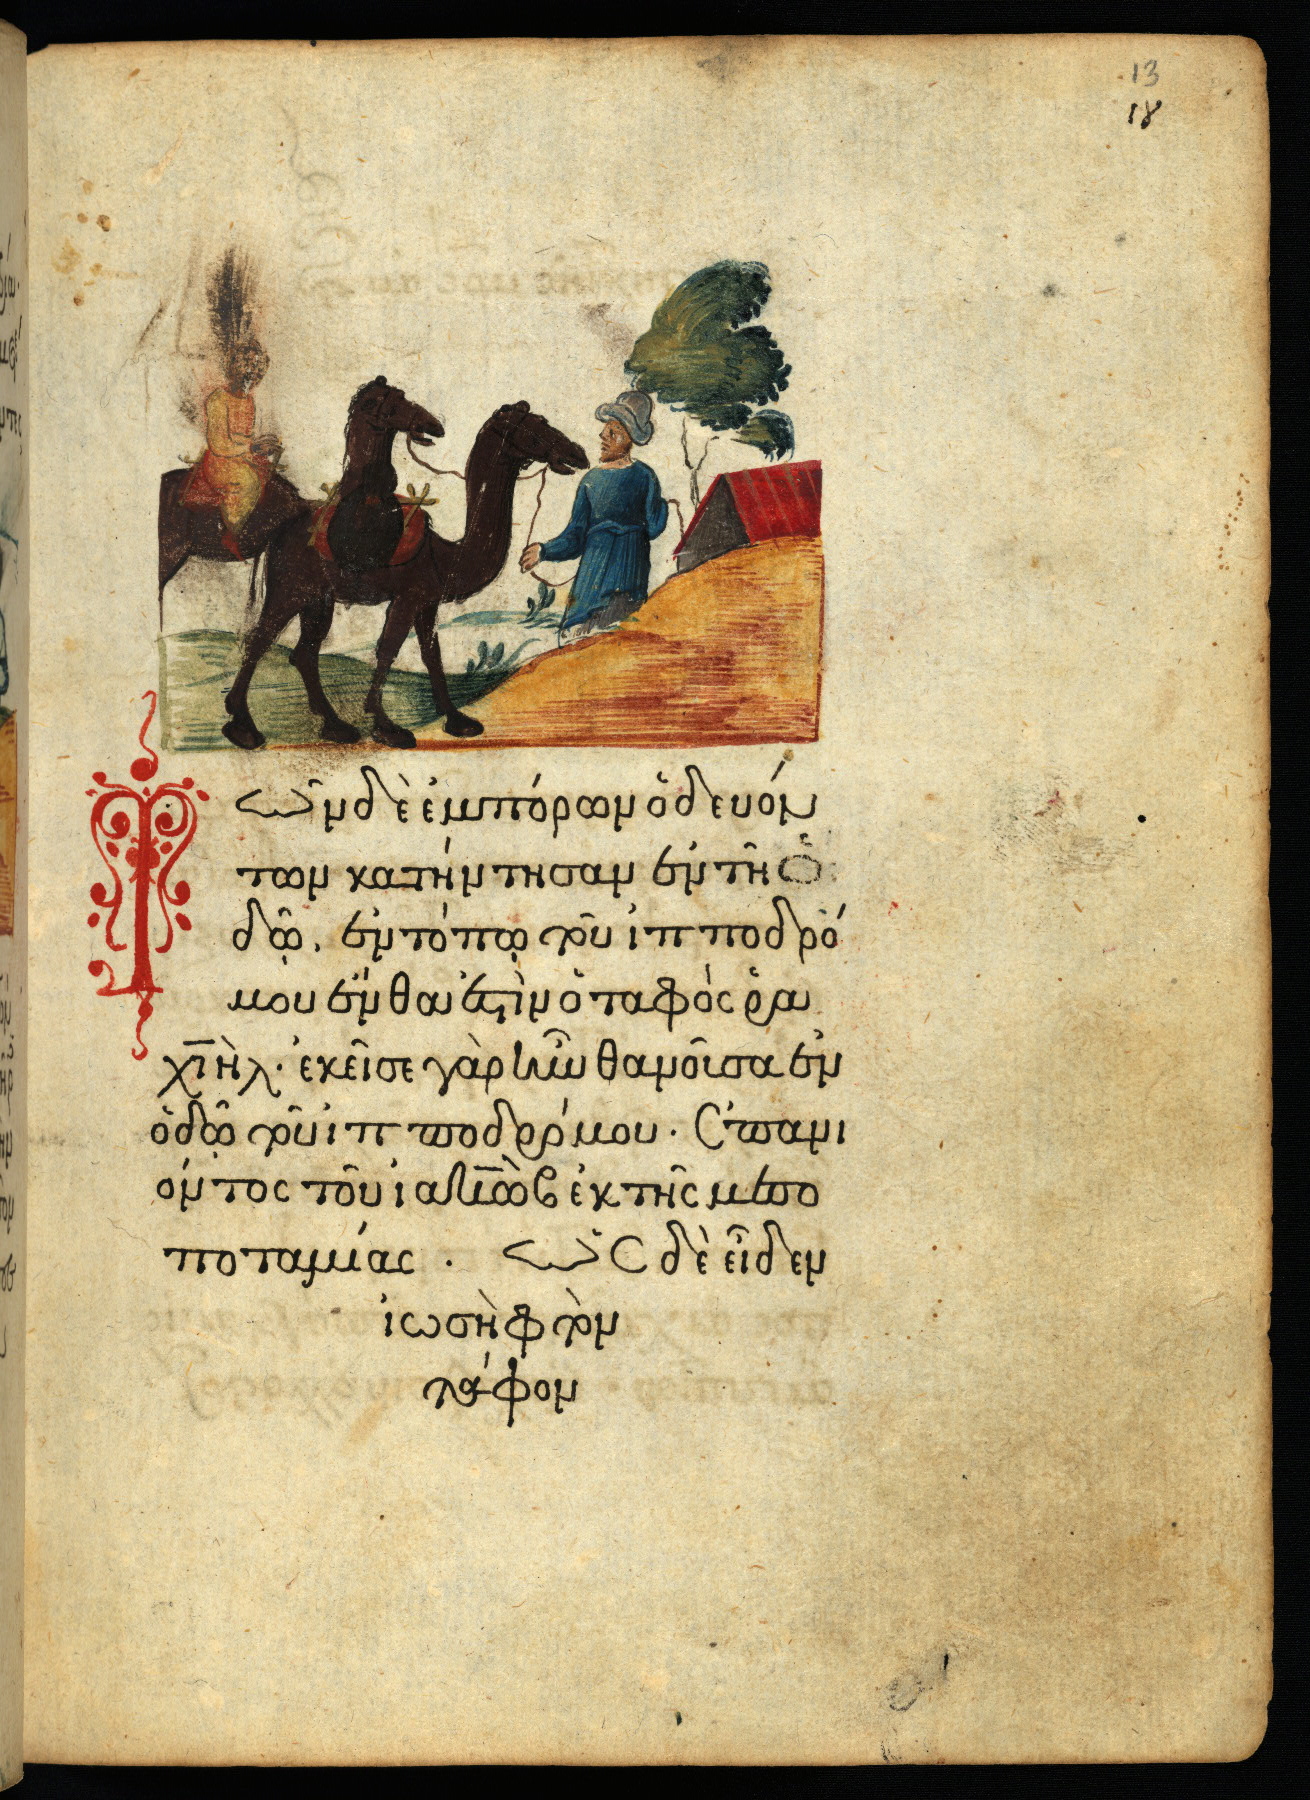 13
18
Τῶν δὲ ἐμπόρων ὁδευόν
των κατήντησαν ἐν τῆ ὁ
δῶ. ἐν τόπω τοῦ ἱπποδρό
μου ἔνθα ἐστὶν ὁ ταφὸς ῥα
χιὴλ· ἐκεῖσε γὰρ ἦν θανοῖσα ἐν
ὁδῶ τοῦ ἱπποδρόμου. Ἐπανι
όντος τοῦ ἰακὼβ ἐκ τῆς μεσο
ποταμίας. Ὡς δὲ εἶδεν
ἰωσὴφ τὸν
τάφον